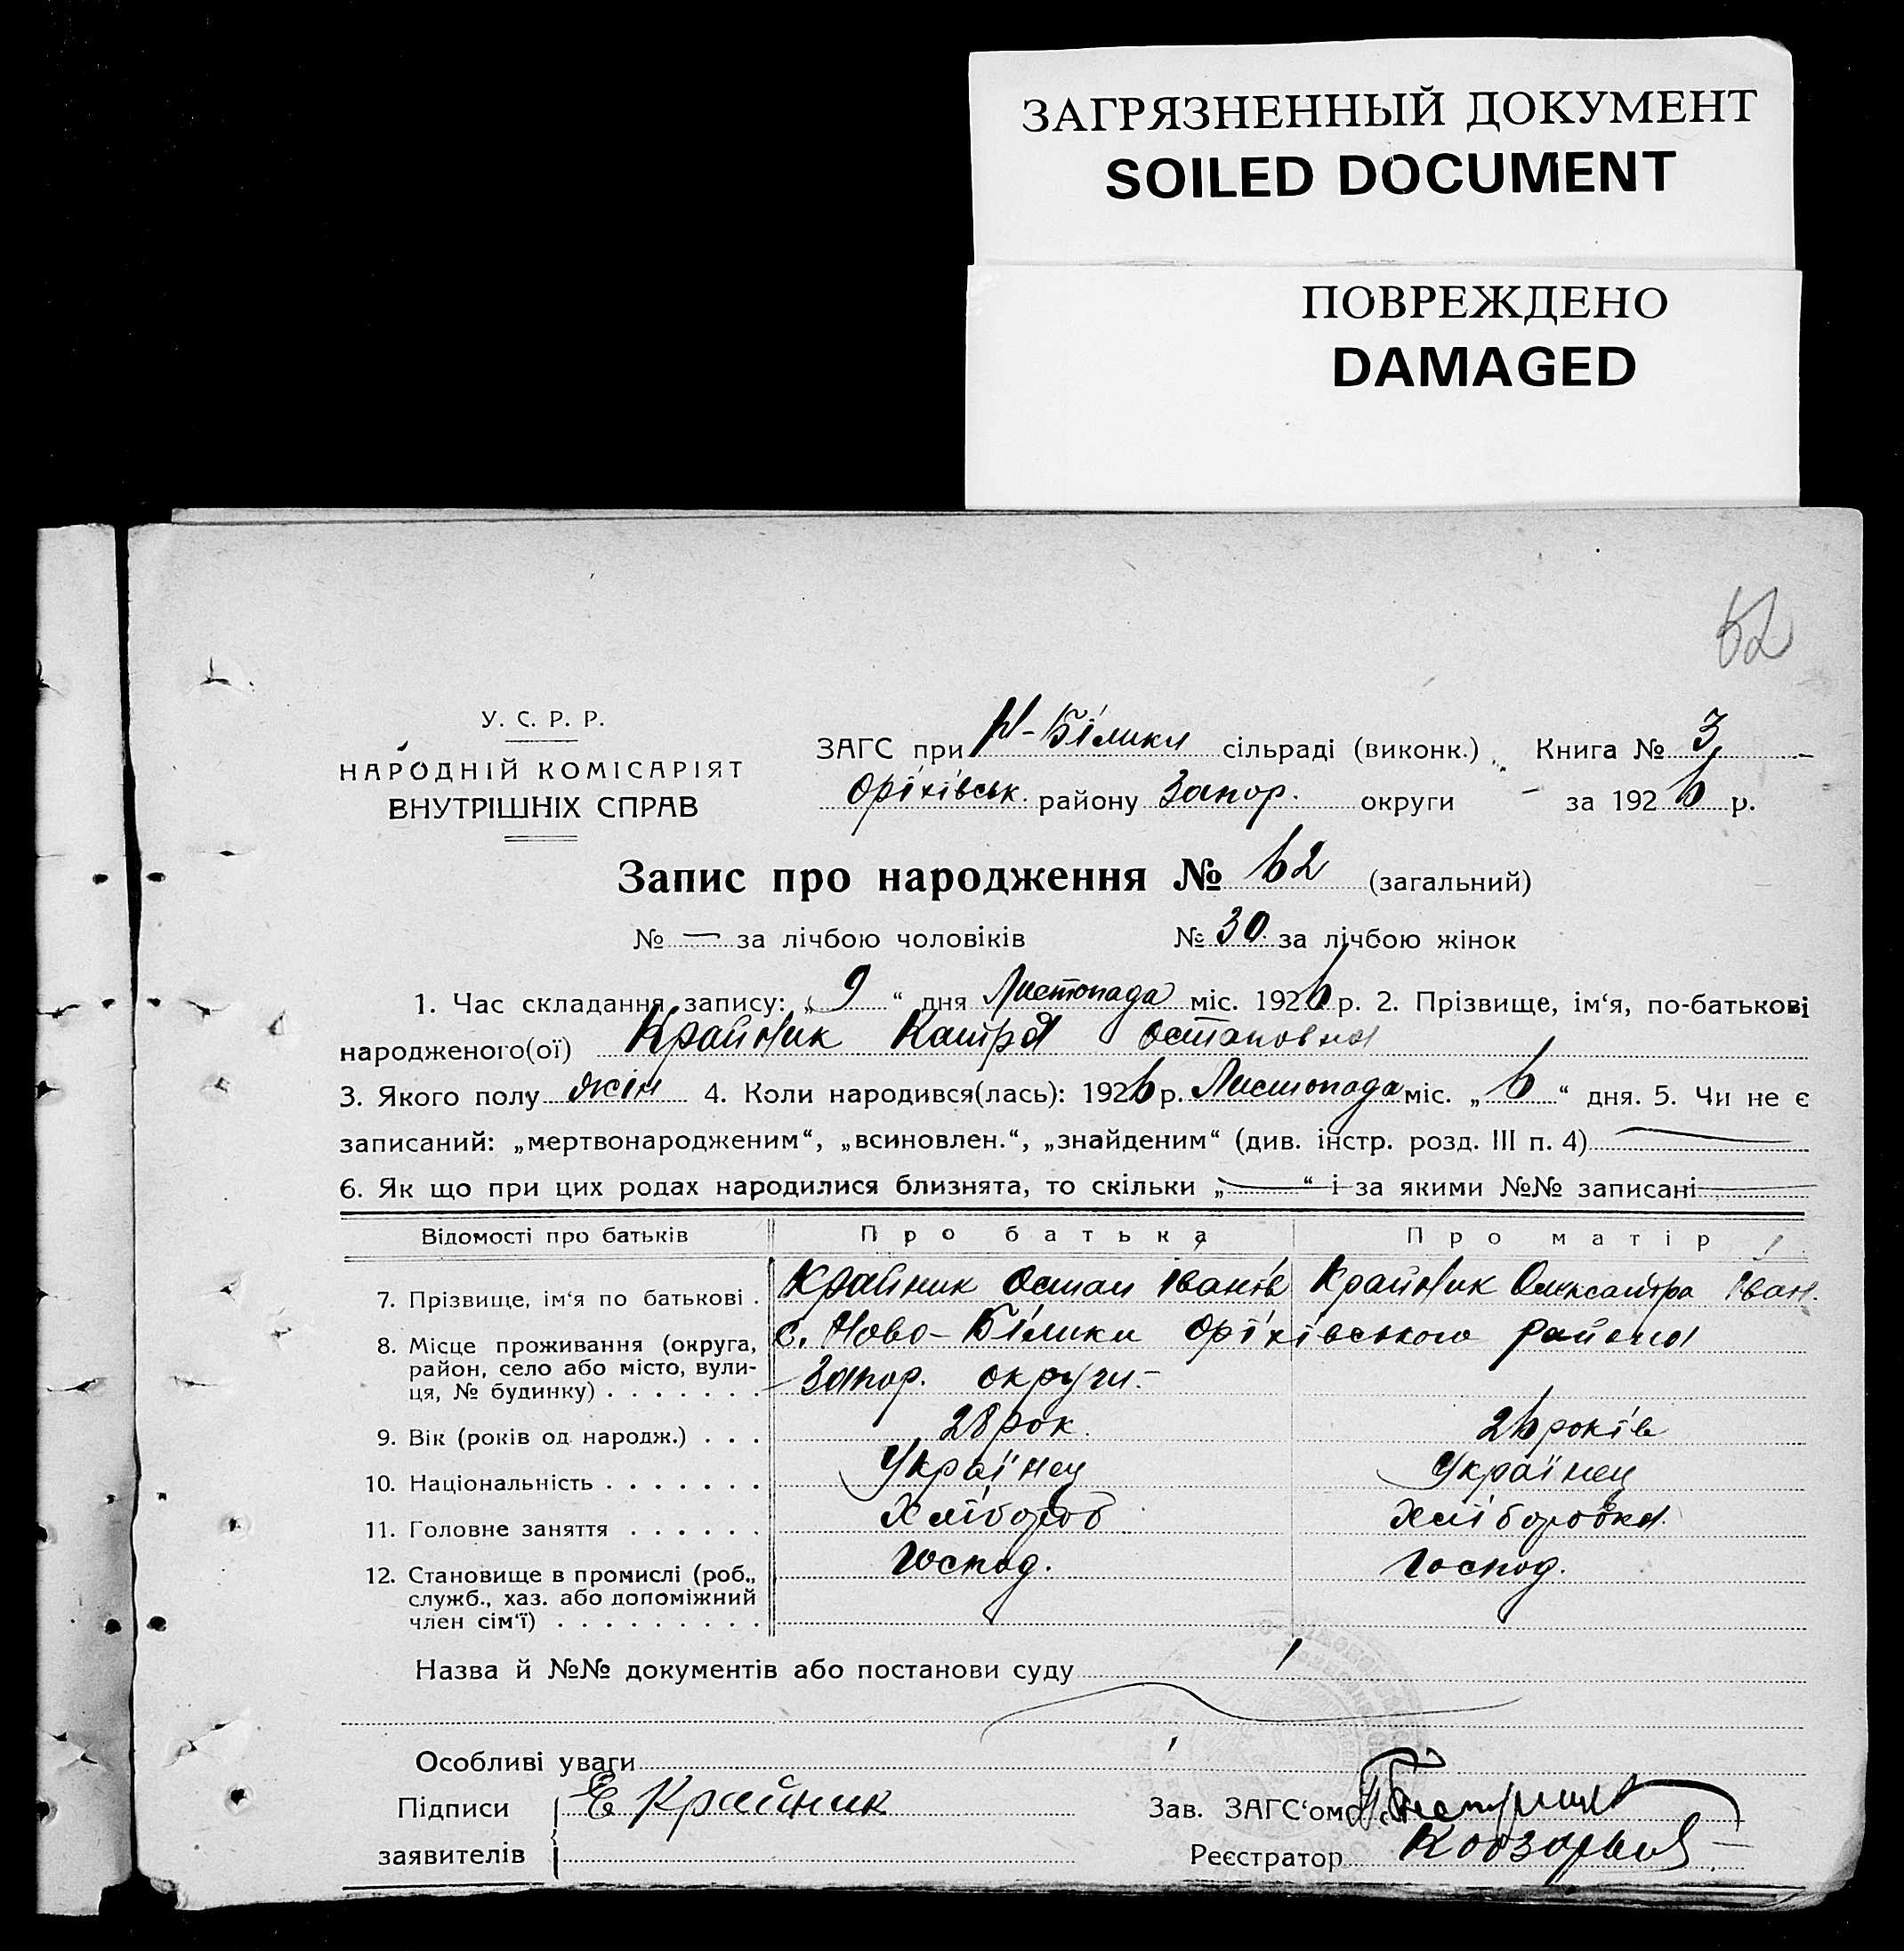 ЗАГРЯЗНЕННЫЙ ДОКУМЕНТ
SOILED DOCUMENT
ПОВРЕЖДЕНО
DAMAGED
62
У. С. Р. Р.
НАРОДНІЙ КОМІСАРІЯТ
ВНУТРІШНІХ СПРАВ
ЗАГС при Н-Білики сільраді (виконк.) Книга № 3
Оріхівськ. району Запор. округи за 1926 р.
Запис про народження № 62 (загальний)
№ — за лічбою чоловіків № 30 за лічбою жінок
1. Час складання запису: „ 9 “ дня Листопада міс. 1926 р. 2. Прізвище, ім‘я, по-батькові
народженого(ої) Крайник Катря Остаповна
3. Якого полу жін 4. Коли народився(лась): 1926 р. Листопада міс. „ 6 “ дня. 5. Чи не є
записаний: „мертвонародженим“, „всиновлен.“, „знайденим“ (див. інстр. розд. III п. 4) —
6. Як що при цих родах народилися близнята, то скільки „ — “ і за якими №№ записані —
Відомості про батьків Про батька Про матір
7. Прізвище, ім‘я по батькові . Крайник Остап Іванів Крайник Олександра Іван.
8. Місце проживання (округа, район, село або місто, вулиця, № будинку) . . . . . . . с. Ново-Білики Оріхівського района
Запор. округи.-
9. Вік (років од народж.) . . . 28 рок. 26 років
10. Національність . . . . . . . Українец Українец
11. Головне заняття . . . . . . Хлібороб Хліборобка.
12. Становище в промислі (роб., служб., хаз. або допоміжний член сім‘ї) . . . . . . . . . Господ. Господ.
Назва й №№ документів або постанови суду
Особливі уваги
Підписи Е Крайник Зав. ЗАГС‘ом
заявителів Реєстратор